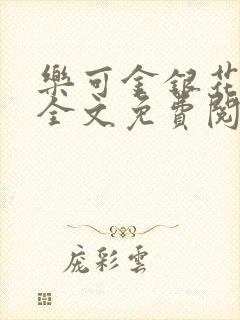 樂可金銀花
全文免費閱
庞彩雲